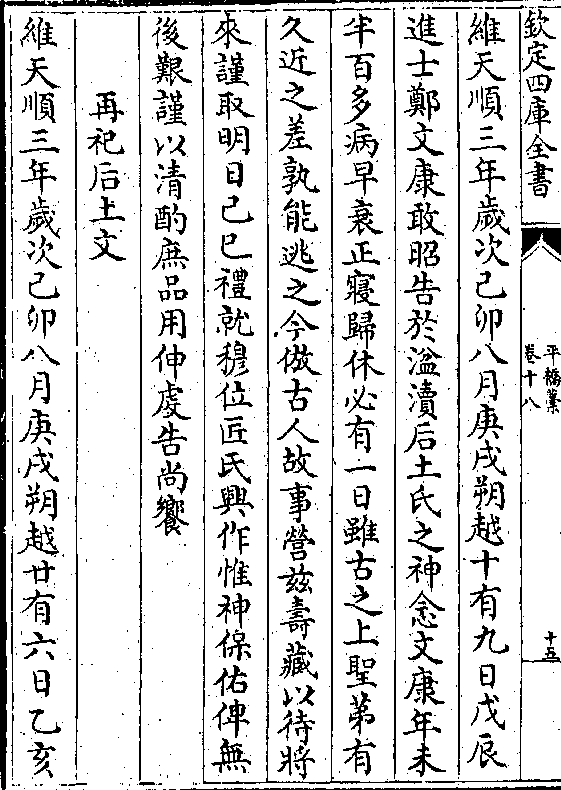 欽定四庫全書
平橋藁
卷十八
十五
維天順三年歲次己卯八月庚戌朔越十有九日戊辰
進士鄭文康敢昭告於溢瀆后土氏之神念文康年未
半百多病早衰正寢歸休必有一日雖古之上聖第有
久近之差孰能逃之今倣古人故事營兹壽藏以待將
來謹取明日己巳禮就穆位匠氏興作惟神保佑俾無
後艱謹以清酌庶品用伸虔告尚饗
再祀后土文
維天順三年歲次己卯八月庚戌朔越廿有六日乙亥